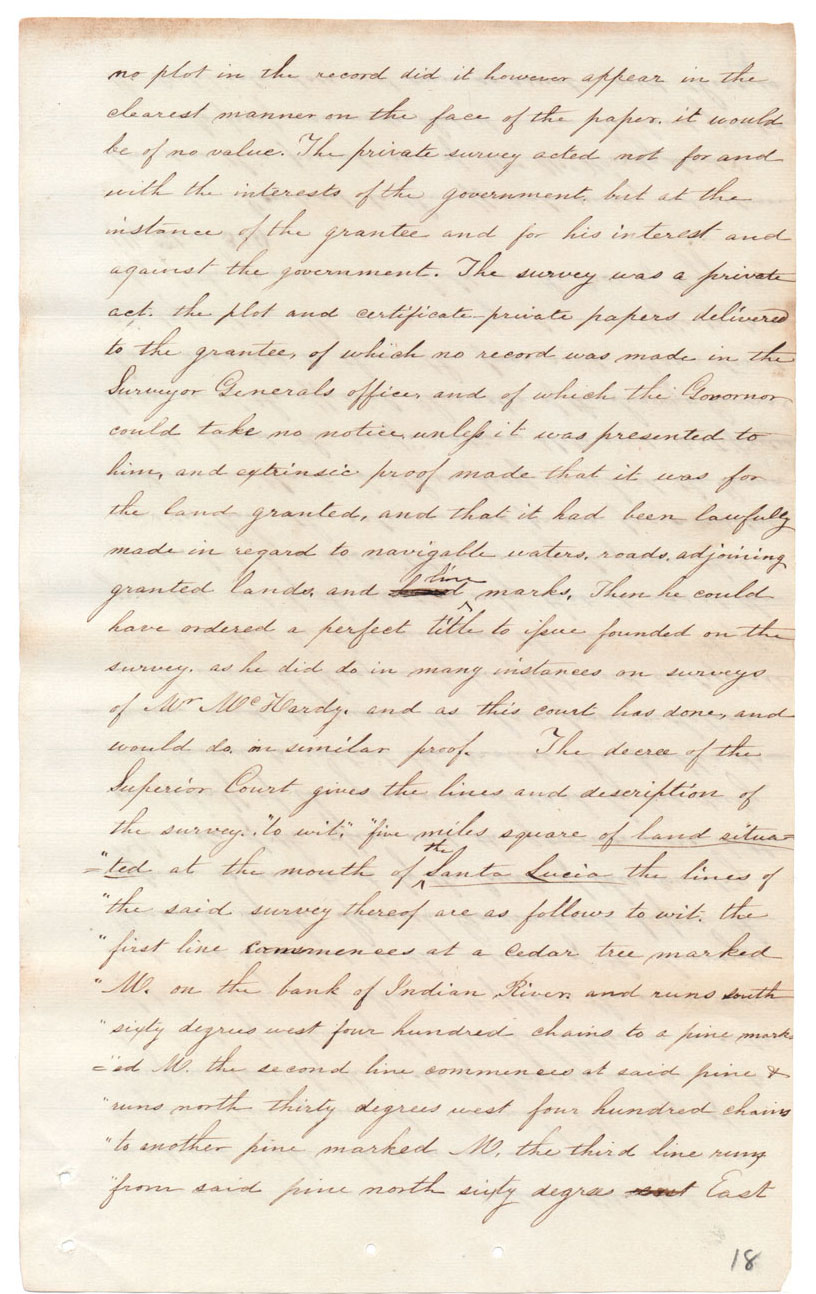 no plot in the record did it however appear in the
clearest manner on the face of the paper. it would
be of no value. The private survey acted not for and
with the interests of the government. but at the
instance of the grantee and for his interest and
against the government. The survey was a private
act. the plot and certificate private papers delivered
to the grantee, of which no record was made in the
Surveyor Generals office, and of which the Governor
could take no notice, unless it was presented to
him, and extrinsic proof made that it was for
the land granted, and that it had been lawfully
made in regard to navigable waters, roads, adjoining
granted lands, and line marks. Then he could
have ordered a perfect title to issue founded on the
survey. as he did do in many instances on surveys
of Mr McHardy. and as this court has done, and
would do, on similar proof. The decree of the
Superior Court gives the lines and description of
the survey. "to wit;" "five miles square of land situa=
="ted at the mouth of the Santa Lucia the lines of
"the said survey thereof are as follows to wit. the
"first line commences at a cedar tree marked
"M. on the bank of Indian River and runs south
"sixty degrees west four hundred chains to a pine mark
="ed M. the second line commences at said pine &
"runs north thirty degrees west four hundred chains
"to another pine marked M. the third line runs
"from said pine north sixty degree East
18